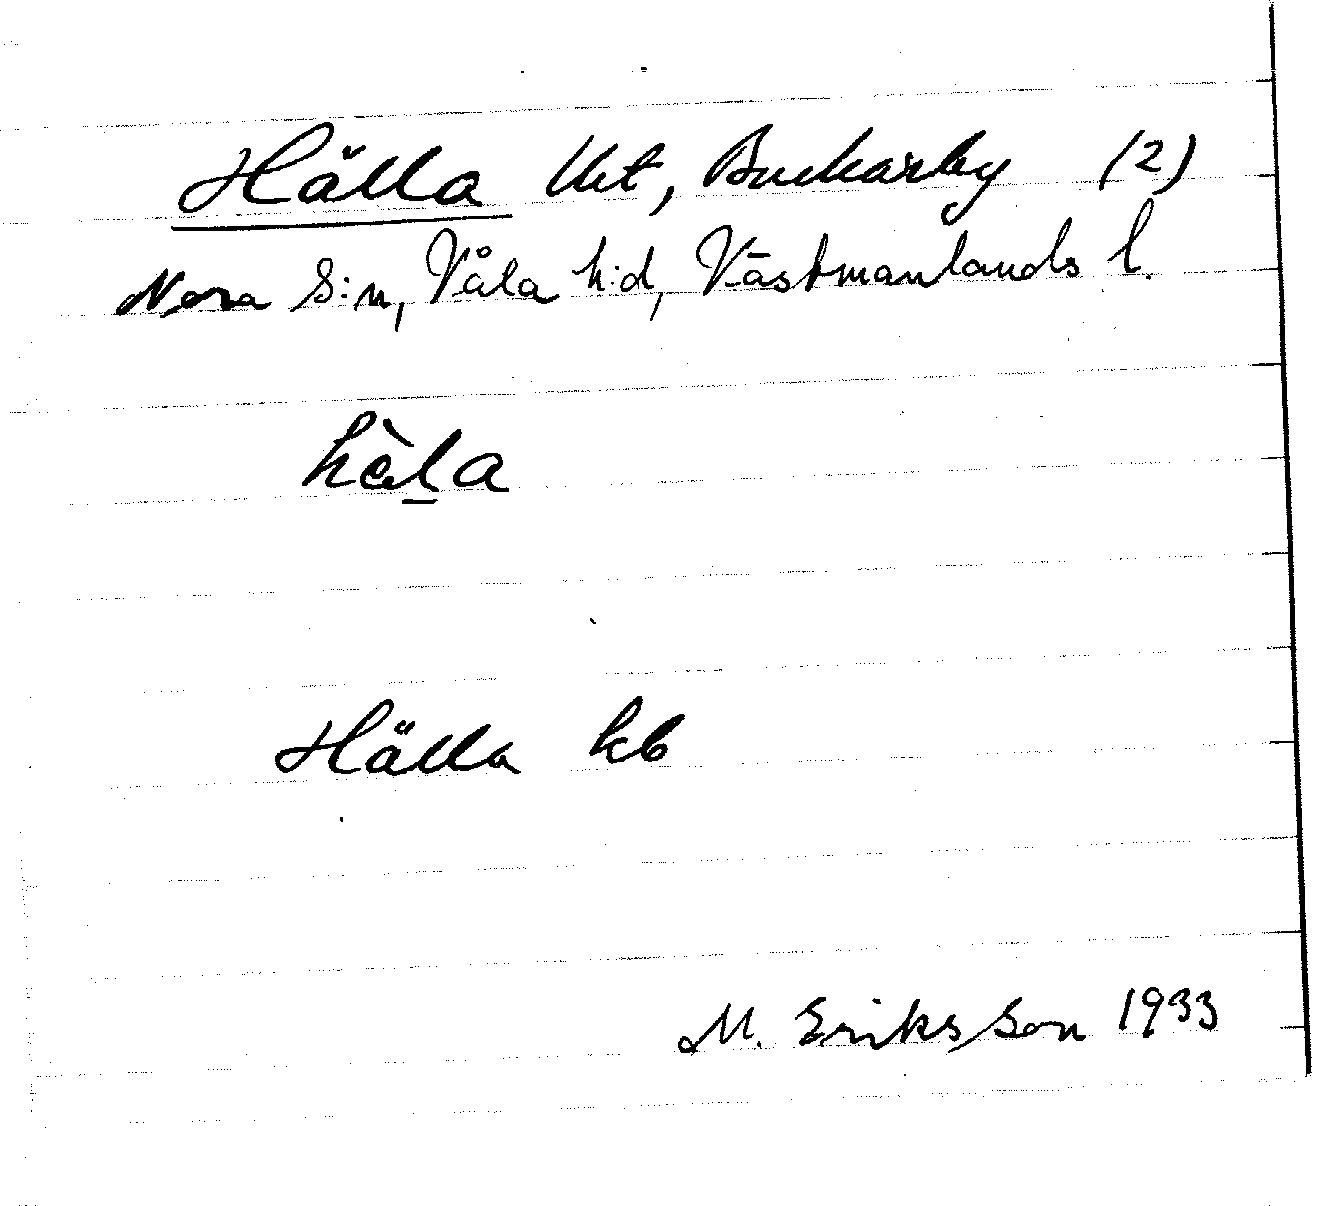 Hälla Uet, Buckarby (2)
Nora S:n, Våla h:d, Västmanlands l.
hὲl̲a
Hälla kb
M. Eriksson 1933